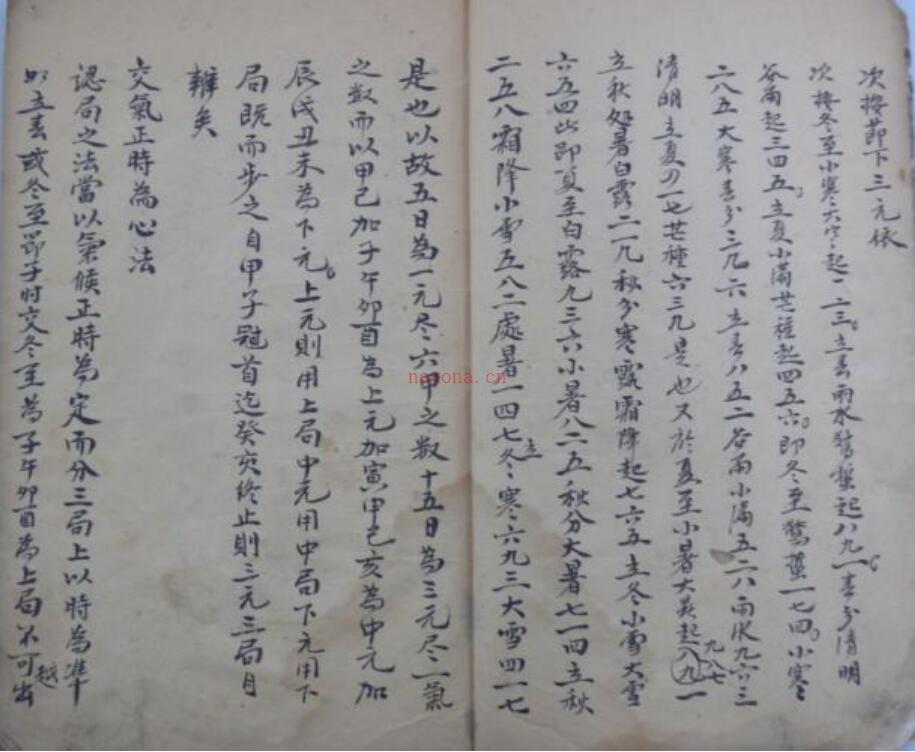 次按節下三元依
次接冬至小寒大寒起一二三立春雨水驚蟄起八九一春分清明
谷雨起三四五立夏小滿芒種起四五六即冬至驚蟄一七四小寒
二八五大寒春分三九六立春八五二谷雨小滿五二八雨水九六三
清明立夏四一七芒種六三九是也又於夏至小暑大暑起八九一
九八七
立秋处暑白露二一九秋分寒露霜降起七六五立冬小雪大雪
六五四此即夏至白露九三六小暑八二五秋分大暑七一四立秋
二五八霜降小雪五八二處暑一四七立冬寒六九三大雪四一七
是也以故五日為一元尽六甲之数十五日為三元尽一氣
之数而以甲己加子午卯酉為上元加寅申巳亥為中元加
辰戌丑未為下元上元則用上局中元用中局下元用下
局既而步之自甲子冠首迄癸亥終止則三元三局自
辨矣
交氣正時為心法
認局之法當以氣候正時為定而分三局上以時為準
如立春或冬至節子时交冬至為子午卯酉為上局不可出越
narona.cn